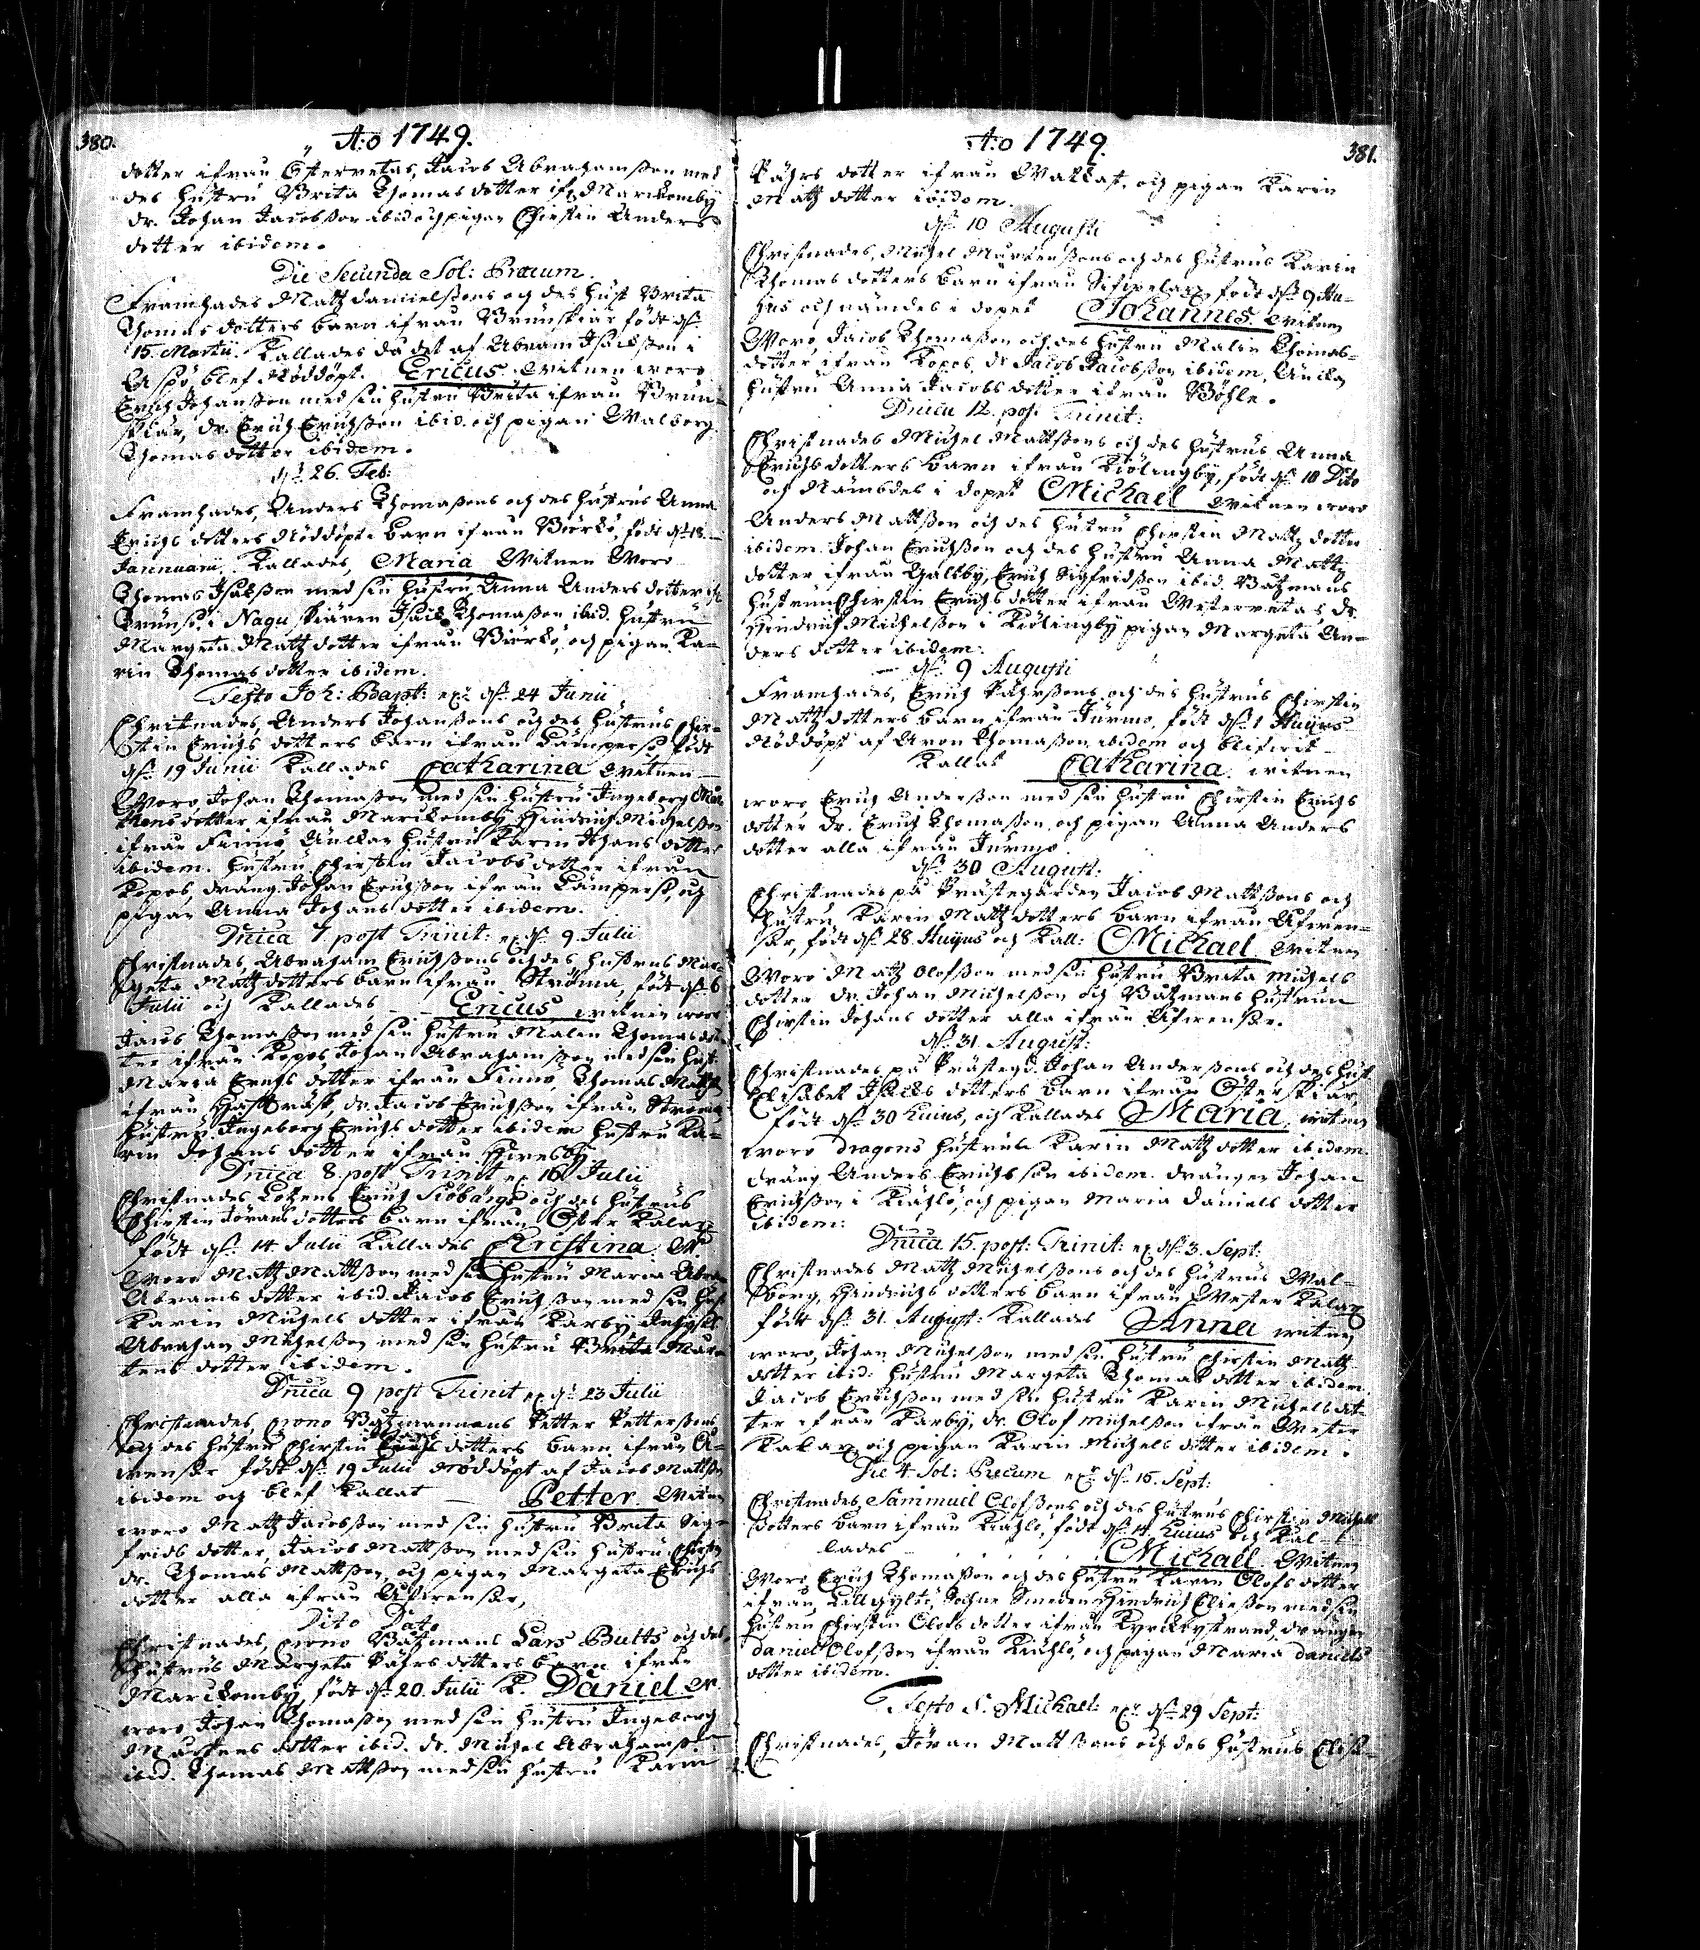 380.
A:o 1749.
dotter ifrån Österretas, Jacob Abrahamsson med
des hustru Brita Thomasdotter if: Marckomby
dr. Johan Jacobsson ibid och pigan Chirstin Anders
dotter ibidem.
Die Secunda Sol: Precum.
Framhades Matz danielssons och des hust Brita
Thomas dotters barn ifrån Brunskiär födt d:
15. Martii. Kallades då det af Abram Isacsson i
Aspö blef Nöddöpt. Ericus witnen woro
Erich Johansson med sin hustru Brita ifrån Brun-
skiär, dr. Erich Erichsson ibid. och pigan Walborg
Thomas dotter ibidem.
d: 26. Feb:
Framhades, Anders Thomassons och des hustrus Anna
Erichs dotters Nöddöpte barn ifrån Biörkö, födt d: 18.
Januarii. Kallades, Maria Witnen Woro
Thomas Isacsson med sin hustru Anna Anders dotter if:
i Nagu skiären Isac Thomasson ibid. hustru
Margeta Matz dotter ifrån Biörkö, och pigan Ka-
rin Thomas dotter ibidem.
Festo Joh: Bapt: d: 24 Junii
Christnades, Anders Johanssons och des hustrus Chir-
stin Erichs dotters barn ifrån Lampersö födt
d: 19 Junii Kallades Catharina witnen
Woro Johan Thomasson med sin hustru Ingeborg Mår
tens dotter ifrån Marckomby Hindrich Michelsson
ifrån Finnö hustru Karin Johans dotter
ibidem. hustru Chirstin Jacobs dotter ifrån
Kopos, dräng Johan Erichsson ifrån Lampersö, och
pigan Anna Johans dotter ibidem.
Dnica 7. post Trinit: d: 9. Julii
Christnades, Abraham Erichssons och des hustrus Mar-
geta Matz dotters barn ifrån Ströma, födt d: 6
Julii och Kallades Ericus witnen woro
Jacob Thomasson med sin hustru Malin Thomas dot-
ter ifrån Kopos Johan Abrahamsson med sin hust:
Maria Erichs dotter ifrån Finnö, Thomas Mattss:
ifrån dr. Jacob Erichsson ifrån Ströma
hustru Ingeborg Erichs dotter ibidem hustru Ka-
rin Johans dotter ifrån
Dnica 8. post Trinit 16 Julii
Christnades Erich och des hustrus
Chirstin Jörans dotters barn ifrån Öster Kalax
födt d: 14. Julii Kallades Christina. W:
Woro Matz Mattsson med sin hustru Maria
Abrams dotter ibid. Jacob Erichsson med sin hust
Karin Michels dotter ifrån Karby
Abraham Michelsson med sin hustru Brita Mår
tens dotter ibidem.
Dnica 9 post Trinit d: 23 Julii
Christnades Crono Båtzmannens Petter Petterssons
och des hustru Chirstin Johans dotters barn ifrån A-
wensar födt d: 19 Julii nöddöpt af Jacob Mattss
ibidem och blef kallat Petter Witn
woro Matz Jacobsson med sin hustru Brita Sig-
frids dotter, Jacob Mattsson med sin hustru Chirstin
dr. Thomas Mattsson, och pigan Margeta Erichs
dotter alla ifrån Afwensar,
Dito Dato
Christnades, Crono Båtzmans Lars Butts och des
hustrus Margeta Påhrs dotters barn ifrån
Marckomby, födt d: 20. Julii K. Daniel W.
woro Johan Thomasson med sin hustru Ingeborg
Mårtens dotter ibid. dr. Michel Abrahamsson
ibid. Thomas Mattsson med sin hustru Karin
A:o 1749.
381.
Påhrs dotter ifrån Wallax, och pigan Karin
Matz dotter ibidem.
d: 10 Augusti
Christnades, Michel Mårtenssons och des hustrus Karin
Thomas dotters barn ifrån födt d: 9 Hu-
jus och nämdes i dopet Johannes witnen
Woro Jacob Thomasson och des hustru Malin Thomas-
dotter ifrån Kopos, dr Jacob Jacobsson ibidem,
hustru Anna Jacobs dotter ifrån Böhle.
Dnica 12. post Trinit:
Christnades Michel Mattssons och des hustrus Anna
Erichs dotters barn ifrån Kiölingby, födt d: 10 Dito
och Nämbdes i dopet Michael witnen woro
Anders Mattsson och des hustru Chirstin Matz dotter
ibidem. Johan Erichsson och des hustru Anna Matz
dotter ifrån Galtby, Erich Sigfridsson ibid. Båtzmans
hustrun Chirstin Erichs dotter ifrån Westerretas dr.
Hindrich Michelsson i Kiölingby pigan Margeta An-
ders dotter ibidem.
d: 9 Augusti
Framhades, Erich Påhrssons, och des hustrus Chirstin
Matz dotters barn ifrån Jurmo, födt d: 1 Hujus
Nöddöpt af Aron Thomasson ibidem och blifwit
Kallat Catharina. witnen
woro Erich Andersson med sin hustru Chirstin Erichs
dotter dr. Erich Thomasson och pigan Anna Anders
dotter alla ifrån Jurmo.
d: 30 August:
Christnades på Prästegården Jacob Mattssons och
hustru Karin Matz dotters barn ifrån Afwen-
sar, födt d: 28. Hujus och Kall: Michael witnen
Woro Matz Olofsson med sin hustru Brita Michels
dotter dr. Johan Michelsson och Båtzmans hustrun
Chirstin Johans dotter alla ifrån Afwensar.
d: 31 August:
Christnades på Prästeg: Johan Anderssons och des hust
Elisabet Isacs dotters barn ifrån Österskiär
födt d: 30 hujus, och Kallades Maria. witnen
woro dragons hustrun Karin Matz dotter ibidem.
dräng Anders Erichsson ibidem. drängen Johan
Erichsson i Kiählö, och pigan Maria Daniels dotter
ibidem:
Dnica 15. post: Trinit: d: 3. Sept:
Christnades Matz Michelssons och des hustrus Wal-
borg Hindrichs dotters barn ifrån Wester Kalax
födt d: 31. August: Kallades Anna witnen
woro, Johan Michelsson med sin hustru Chirstin Matz
dotter ibid: hustru Margeta Thomas dotter ibidem.
Jacob Erichsson med sin hustru Karin Michels dot-
ter ifrån Karby, dr. Olof Michelsson ifrån Wester
Kalax, och pigan Karin Michels dotter ibidem.
Die 4 Sol: Precum d: 15. Sept:
Christnades Sammuel Olofssons och des hustrus Chirstin Michels
dotters barn ifrån Kiählö, födt d: 14. hujus och Kal-
lades Michael. Witnen
Woro Erich Thomasson och des hustru Karin Olofs dotter
ifrån Lillgyltö, Sochne Smeden Hindrich Eliesson med sin
hustru Chirstin Olofs dotter ifrån Kyrckystrand, drängen
Daniel Olofsson ifrån Kiählö, och pigan Maria Daniels
dotter ibidem.
Festo S. Michael: d: 29 Sept:
Christnades, Jöran Mattssons och des hustrus Elisa-